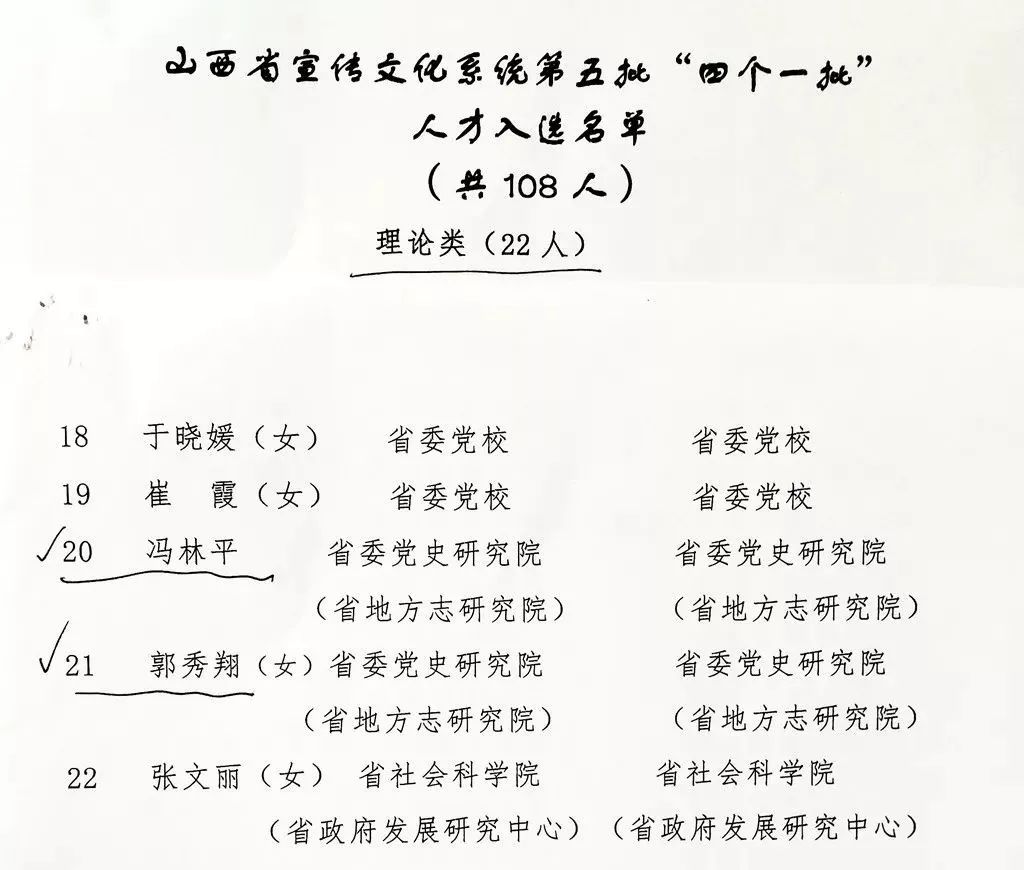 山西省宣传文化系统第五批“四个一批”
人才入选名单
(共108人)
理论类(22人)
18 于晓媛(女) 省委党校 省委党校
19 崔 霞(女) 省委党校 省委党校
20 冯林平 省委党史研究院 省委党史研究院
(省地方志研究院) (省地方志研究院)
21 郭秀翔(女) 省委党史研究院 省委党史研究院
(省地方志研究院) (省地方志研究院)
22 张文丽(女) 省社会科学院 省社会科学院
(省政府发展研究中心) (省政府发展研究中心)